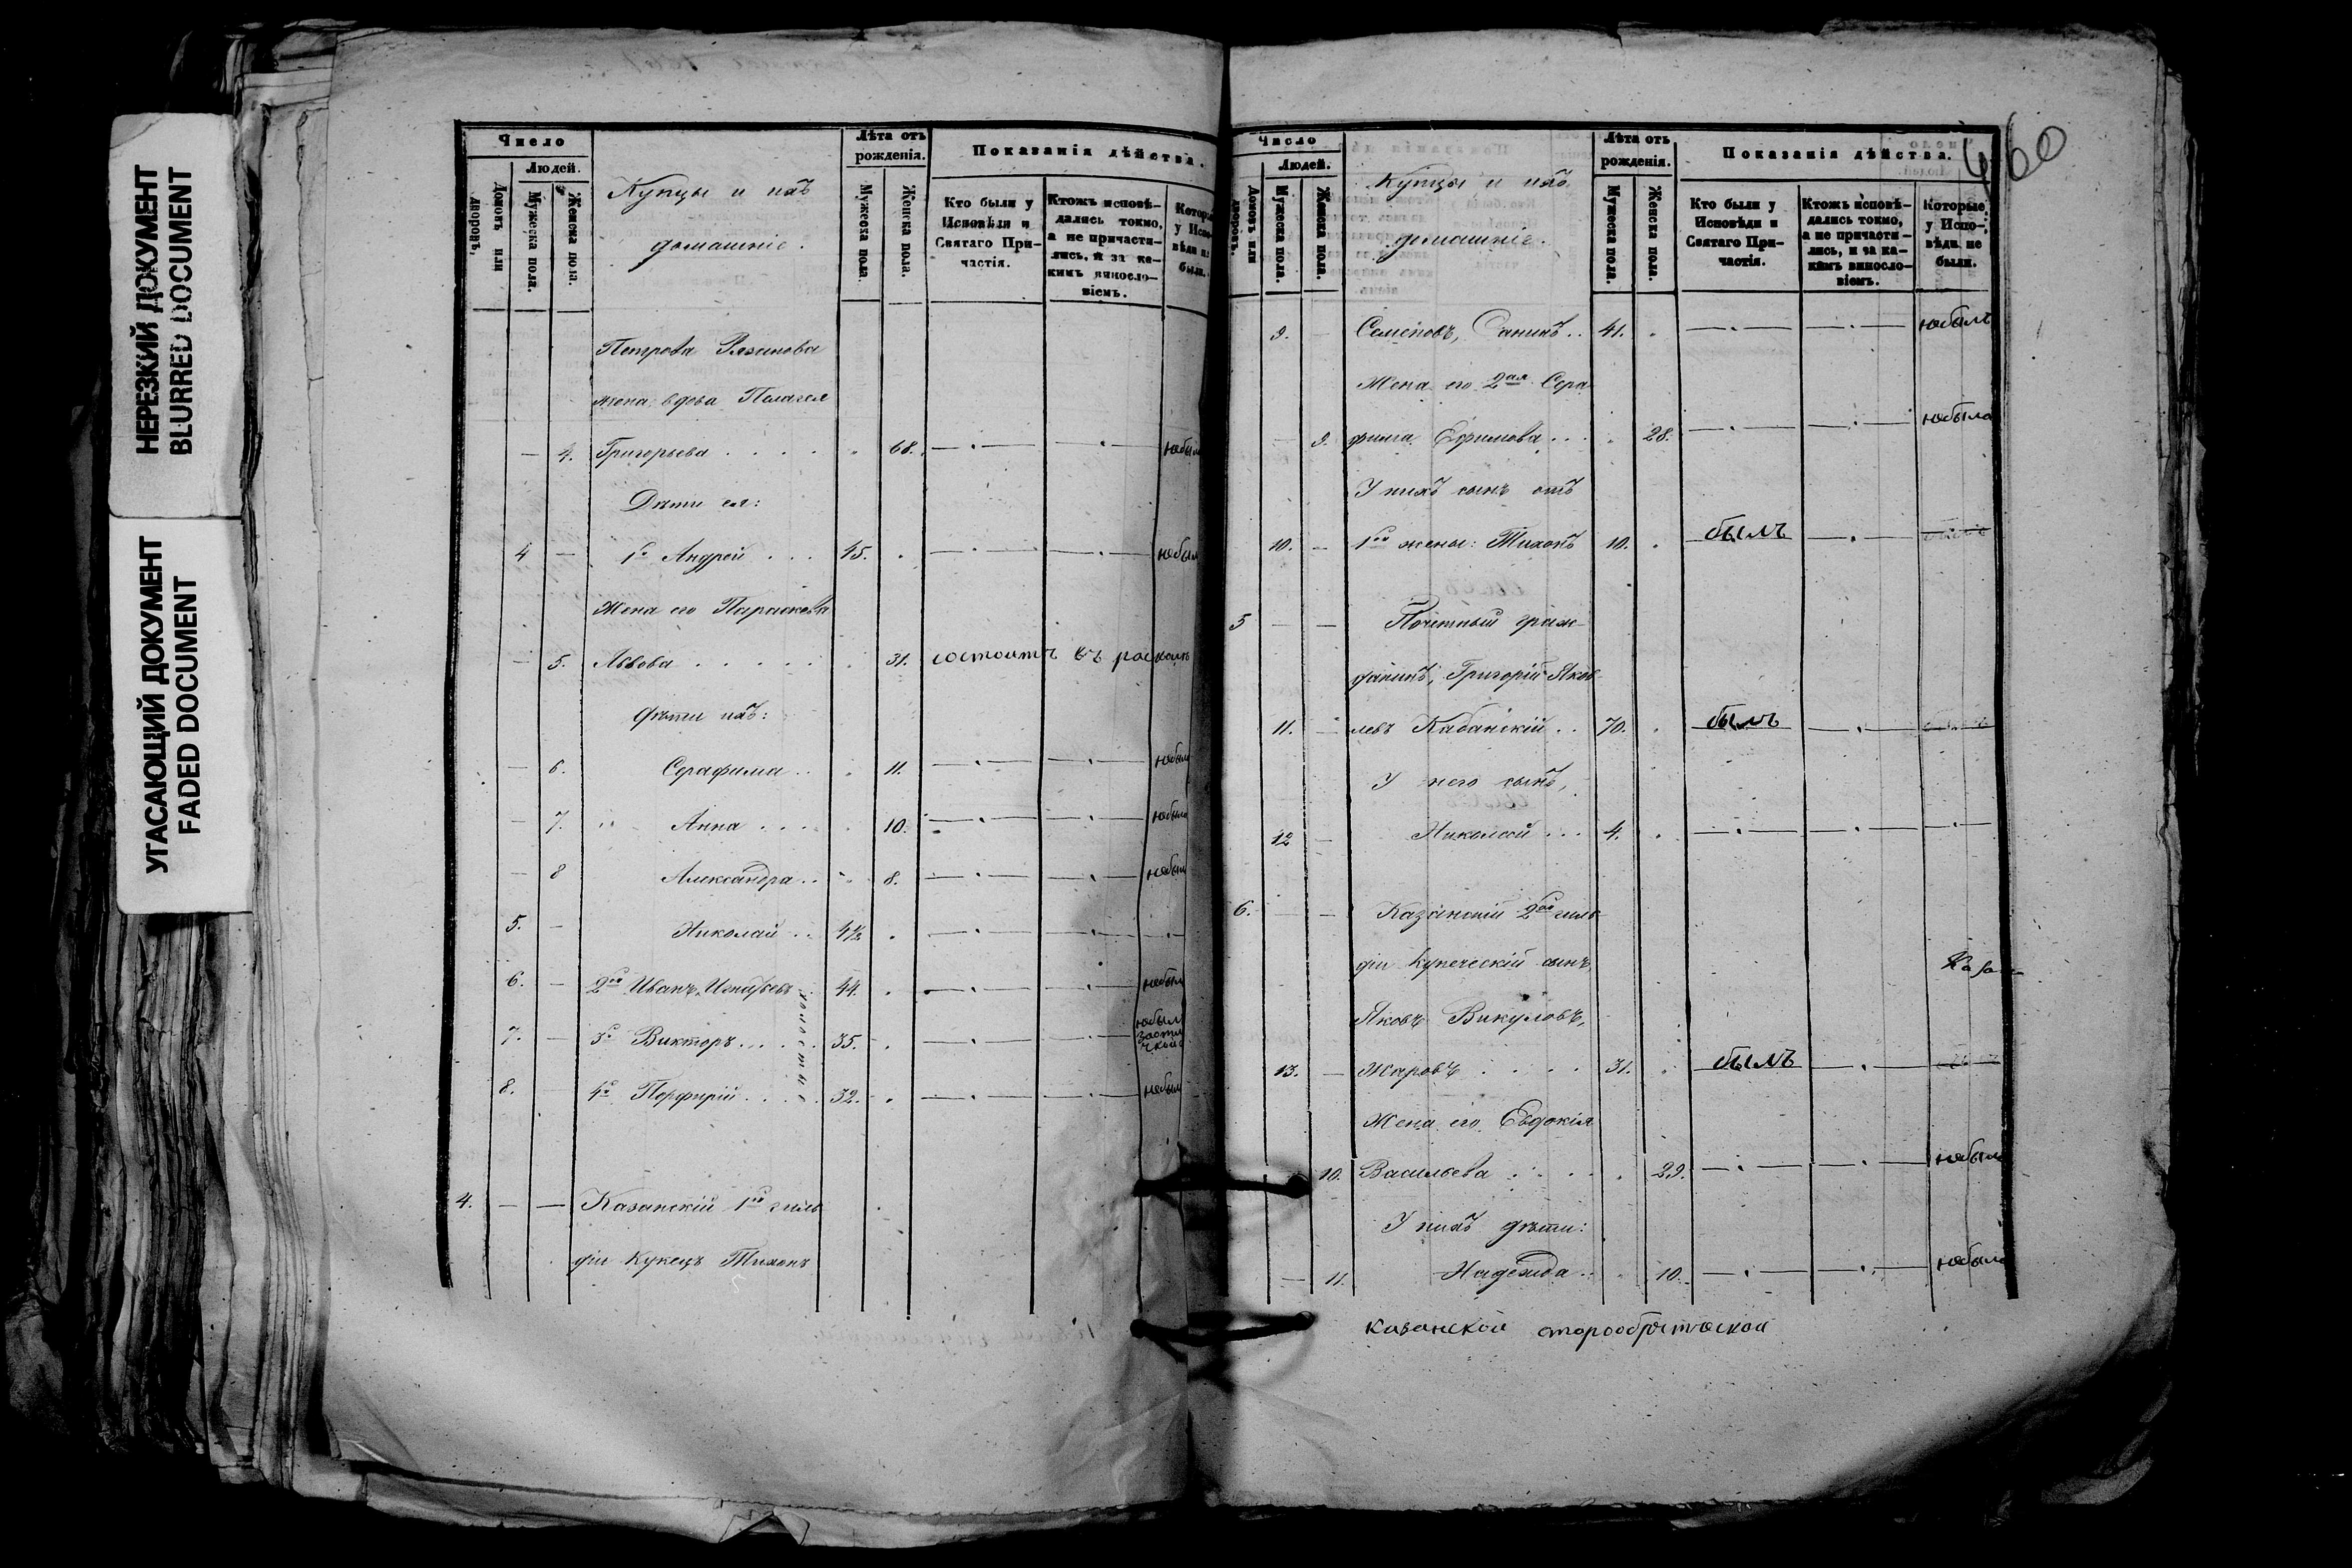 НЕРЕЗКИЙ ДОКУМЕНТ
BLURRED DOCUMENT
УГАСАЮЩИЙ ДОКУМЕНТ
FADED DOCUMENT
Число
Людей.
Домовъ или дворовъ.
Мужеска пола.
Женска пола.
Купцы и ихъ
домашніе.
Лѣта отъ
рожденія.
Мужеска пола
Женска пола.
Показанія дѣйства.
Кто были у
Исповѣди и
Святаго При-
частія.
Ктожъ исповѣ-
дались токмо,
а не причасти-
лись, и за ка-
кимъ виносло-
віемъ.
Петрова Рязанова
жена вдова Пелагея
4. Григорьева . . . . 68. небыла
Дѣти ея:
4 1й Андрей . . . 45. небылъ
Жена его Параскева
5. Львова . . . . . 31. состоитъ въ расколѣ
Дѣти ихъ:
6. Серафима . . 11. небыла
7. Анна . . . . 10. небыла
8 Александра . . 8. небыла
5. Николай . . 4½
6. 2й Иванъ 44. небылъ
7. 3й Викторъ . . . . . 35. небылъ
8. 4й Порфирій . . . . . 32. небылъ
холостые
4. Казанскій 1й гиль-
діи Купецъ Тихонъ
460
Число
Людей.
Домовъ или дворовъ.
Мужеска пола.
Женска пола.
Купцы и ихъ
домашніе.
Лѣта отъ
рожденія.
Мужеска пола.
Женска пола.
Показанія дѣйства.
Кто были у
Исповѣди и
Святаго При-
частія.
Ктожъ исповѣ-
дались токмо,
а не причасти-
лись, и за ка-
кимъ виносло-
віемъ.
Которые
у Испо-
вѣди не
были.
9. Семеновъ, Санинъ . . 41. небылъ
Жена его 2ая Сера-
9. фима Ефимова . . . 28. небыла
У нихъ сынъ отъ
10. 1й жены: Тихонъ 10. былъ
5 Почетный граж-
данинъ, Григорій Яков-
11. левъ Кабанскій . . 70. былъ
У него сынъ,
12 Николай . . . 4.
6. Казанскій 2й гиль-
діи Купеческій сынъ,
Яковъ Викуловъ,
13. Жаровъ . . . . 31. былъ
Жена его Евдокія
10. Васильева . . . . 29. небыла
У нихъ дѣти:
11. Надежда . . 10. небыла
Казанской старообрядческой